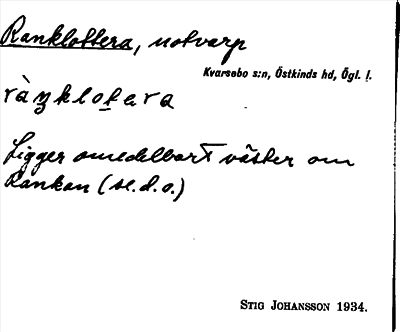 Ranklottera, notvarp
Kvarsebo s:n, Östkinds hd, Ögl. l.
ràŋklotara
Ligger omedelbart väster om
Rankan (se.d.o.)
STIG JOHANSSON 1934.